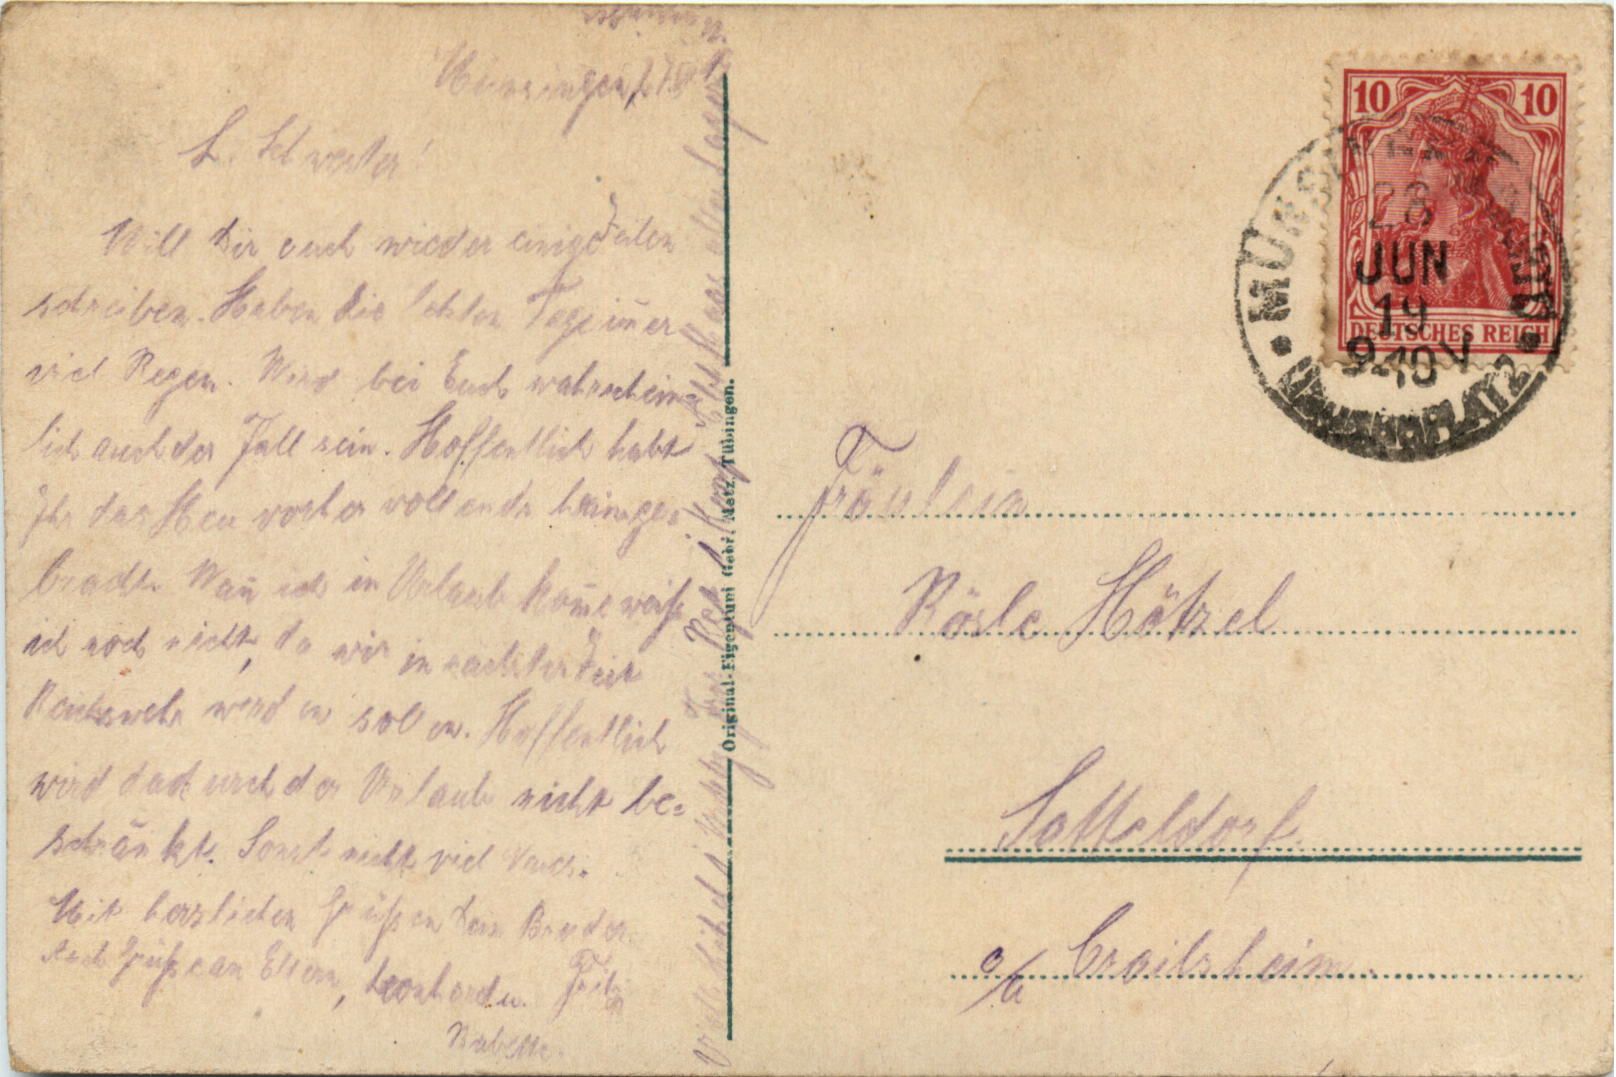 Münsingen,
L. Schwester!
Will Dir auch wieder einige Zeilen
schreiben. Haben die letzten Tage im̄er
viel Regen. Wird bei Euch wahrschein=
lich auch der Fall sein. Hoffentlich habt
Ihr das Heu vorher vollends heimge=
bracht. Wan̄ ich in Urlaub kom̄e weiß
ich noch nicht, da wir in nächster Zeit
Reichswehr werden sollen. Hoffentlich
wird dadurch der Urlaub nicht be=
schränkt. Sonst nicht viel Neues.
Mit herzlichen Grüßen Dein Bruder
Auch Grüße an Eltern, Leonhard u. Fritz
Babette.
Original-Eigentum Gebr. Metz, Tübingen.
10 10
DEUTSCHES REICH
MÜNSINGEN
28
JUN
19
9-10V
TRUPPENÜBUNGSPLATZ
Fräulein
Rösle Hötzel
Satteldorf.
o/a Crailsheim.